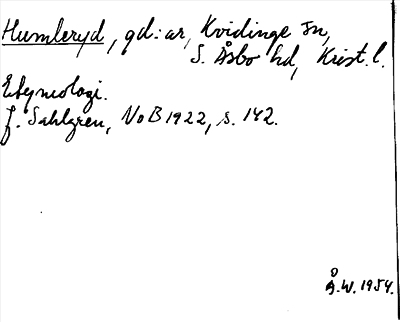 Humleryd, gd:ar, Kvidinge sn,
S. Åsbo hd, Krist. l.
Etymologi.
J. Sahlgren, NoB 1922, s. 142.
Å.W. 1954.